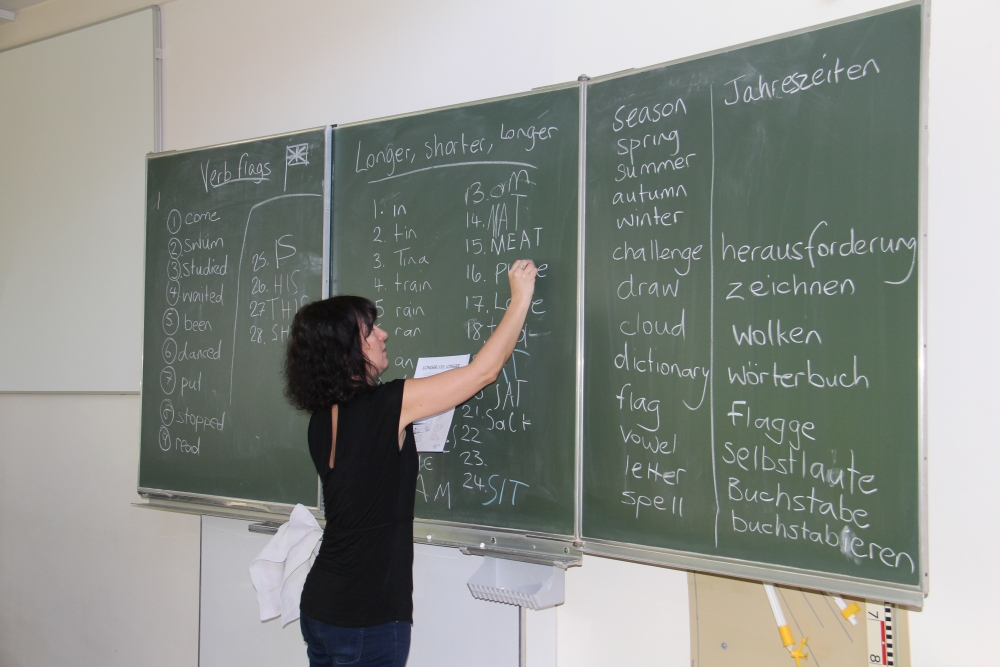 Verb flags
① come
② swum
③ studied
④ waited
⑤ been
⑥ danced
⑦ put
⑧ stopped
⑨ read
25. IS
26. HIS
27 THIS
28.
Longer, shorter, longer
1. in
2. tin
3. Tina
4. train
5 rain
ran
an
AM
13. arm
14.
15. MEAT
16.
17.
18.
SAT
21. Sack
22
23.
24. SIT
season Jahreszeiten
spring
summer
autumn
winter
challenge herausforderung
draw zeichnen
cloud wolken
dictionary wörterbuch
flag flagge
vowel selbstlaute
letter Buchstabe
spell buchstabieren
7
8